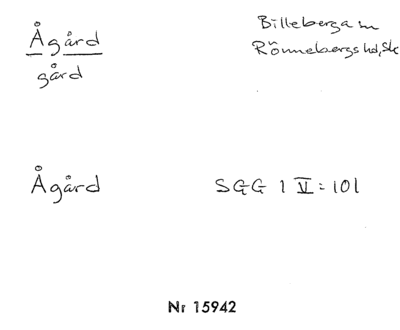 Ågård
gård
Billeberga sn
Rönnebergs hd, Sk
Ågård
SGG 1 V:101
Nr 15942